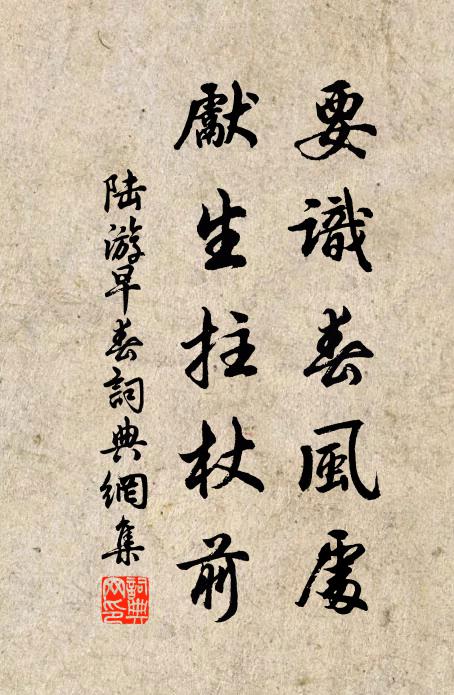 要識春風處
獻生拄杖前
陆游早春詞典網集
詞典网印